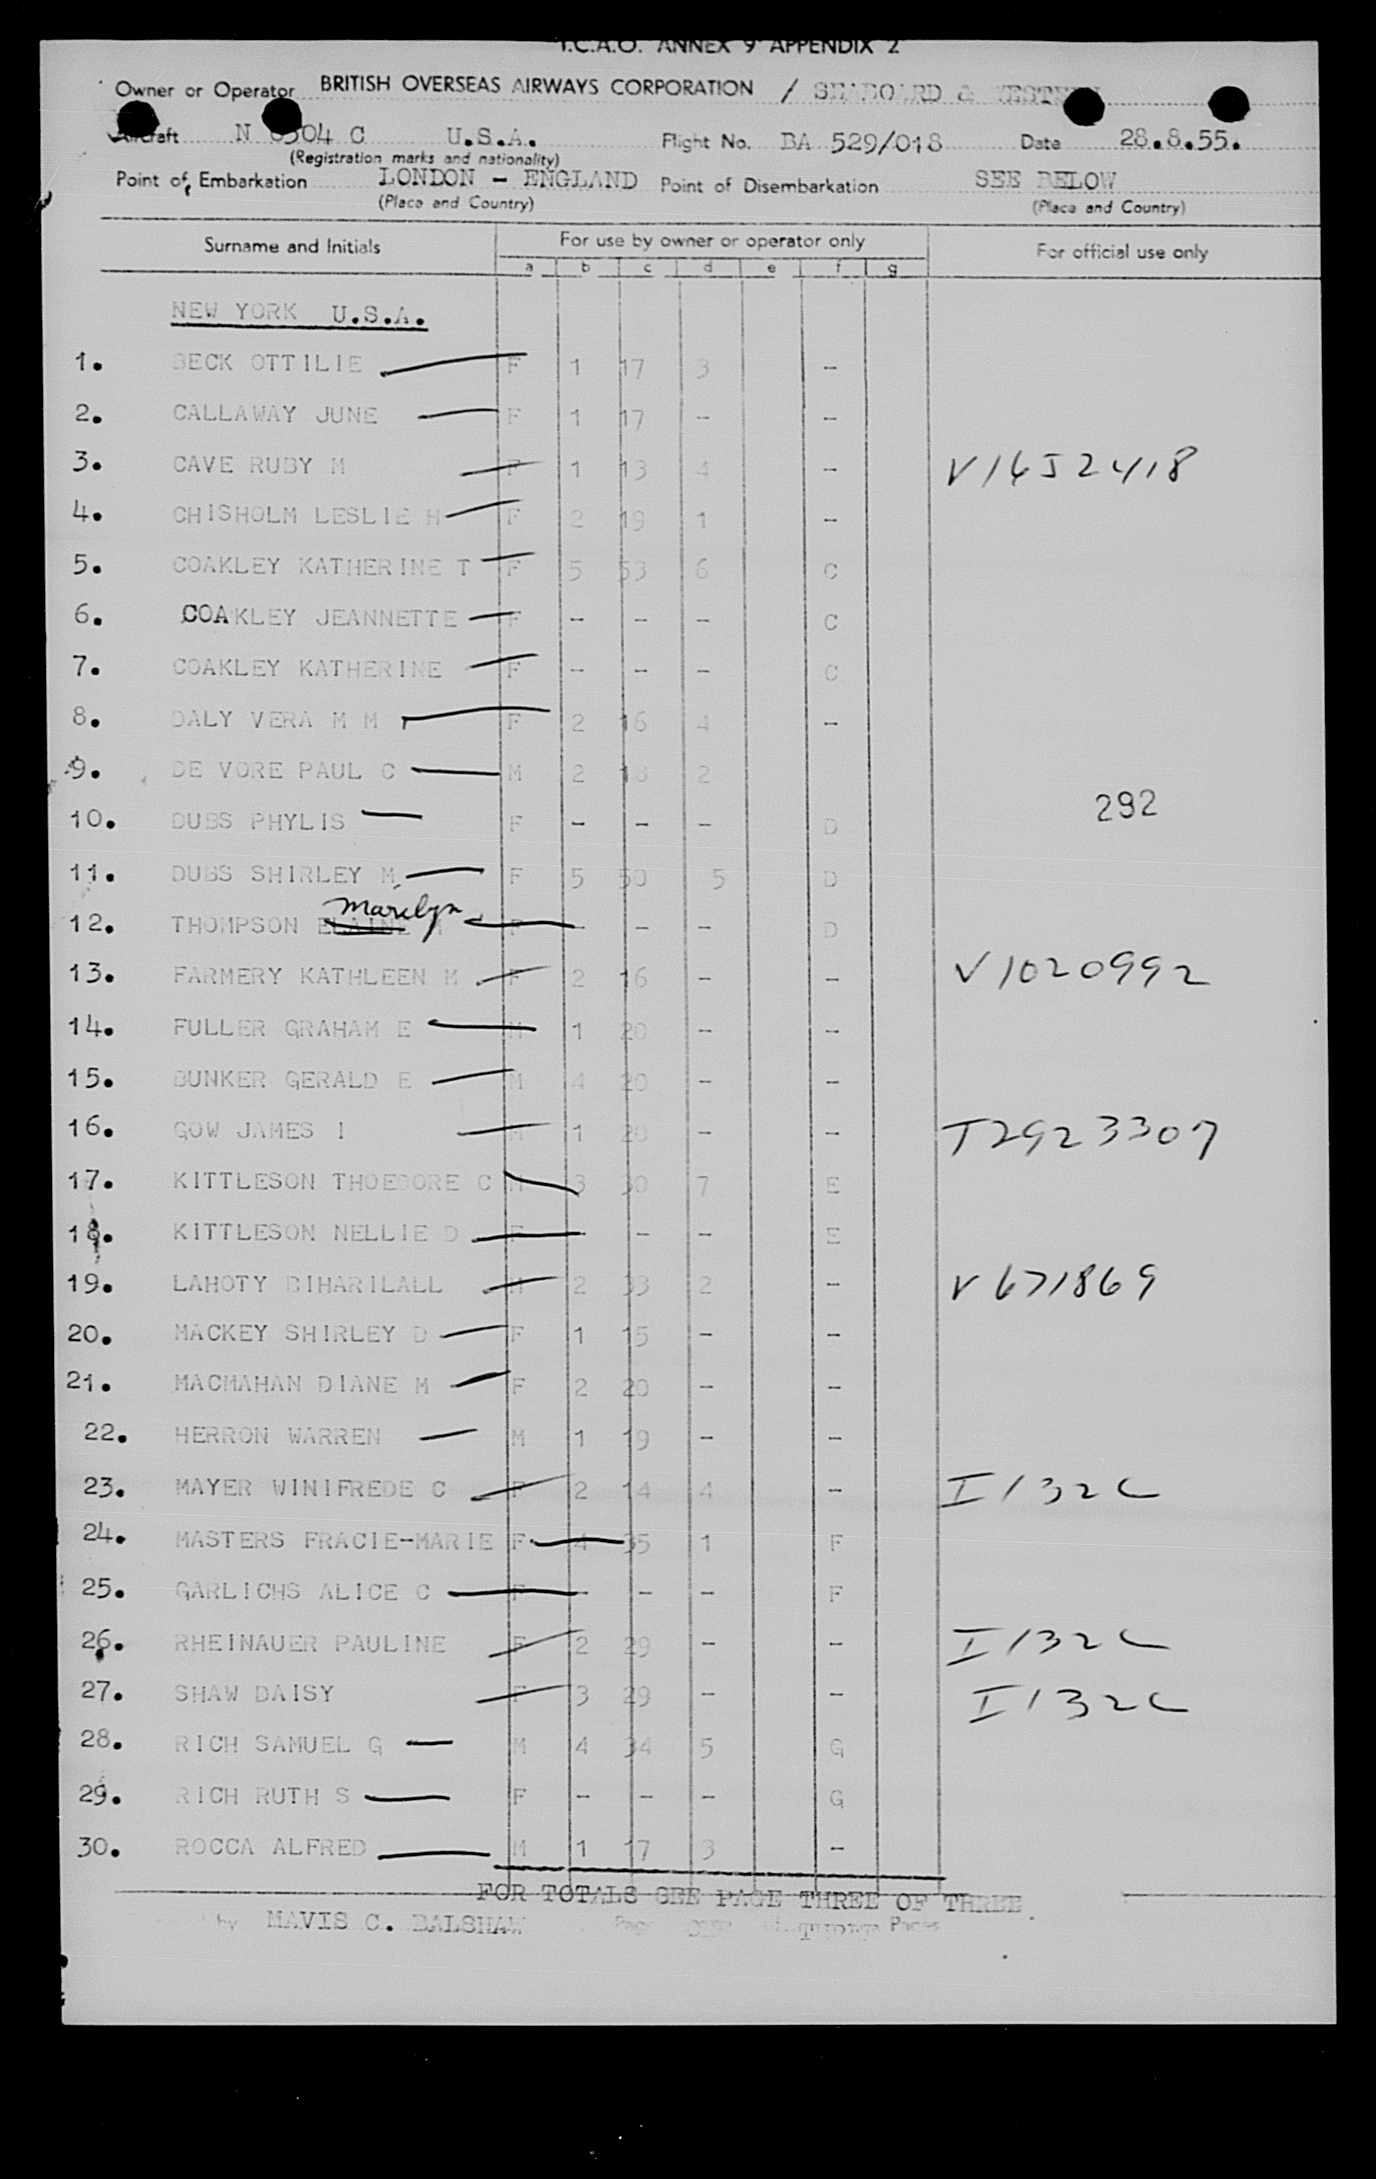 I.C.A.O. ANNEX 9 APPENDIX 2
Owner or Operator BRITISH OVERSEAS AIRWAYS CORPORATION / SEABOARD & WESTERN
Aircraft N 6504 C U.S.A. Flight No. BA 529/018 Date 28.8.55.
(Registration marks and nationality)
Point of Embarkation LONDON - ENGLAND Point of Disembarkation SEE BELOW
(Place and Country) (Place and Country)
Surname and Initials For use by owner or operator only For official use only
a b c d e f g
NEW YORK U.S.A.
1. BECK OTTILIE F 1 17 3 -
2. CALLAWAY JUNE F 1 17 - -
3. CAVE RUBY M F 1 13 4 - V1652418
4. CHISHOLM LESLIE H F 2 19 1 -
5. COAKLEY KATHERINE T F 5 53 6 C
6. COAKLEY JEANNETTE F - - - C
7. COAKLEY KATHERINE F - - - C
8. DALY VERA M M F 2 16 4 -
9. DE VORE PAUL C M 2 18 2
292
10. DUBS PHYLIS F - - - D
11. DUBS SHIRLEY M F 5 50 5 D
Marilyn
12. THOMPSON ELAINE M F - - - D
13. FARMERY KATHLEEN M F 2 16 - - V1020992
14. FULLER GRAHAM E M 1 20 - -
15. BUNKER GERALD E M 4 20 - -
16. GOW JAMES I M 1 20 - - T2923307
17. KITTLESON THOEDORE C M 3 30 7 E
18. KITTLESON NELLIE D F - - - E
19. LAHOTY BIHARILALL M 2 33 2 - V671869
20. MACKEY SHIRLEY D F 1 15 - -
21. MACMAHAN DIANE M F 2 20 - -
22. HERRON WARREN M 1 19 - -
23. MAYER WINIFREDE C F 2 14 4 - I132C
24. MASTERS FRACIE-MARIE F 4 35 1 F
25. GARLICHS ALICE C F - - - F
26. RHEINAUER PAULINE F 2 29 - - I132C
27. SHAW DAISY F 3 29 - - I132C
28. RICH SAMUEL G M 4 34 5 G
29. RICH RUTH S F - - - G
30. ROCCA ALFRED M 1 17 3 -
FOR TOTALS SEE PAGE THREE OF THREE
by MAVIS C. BALSHAW Page ONE of THREE Pages